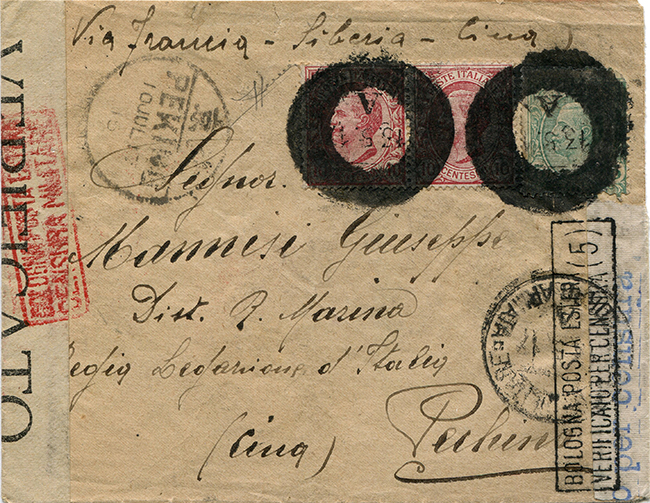 Via Francia - Siberia - Cina
PEKIN
10 JUL 17
Signor.
Mannisi Giuseppe
Dist. R. Marina
Regia Legazione d'Italia
(Cina) Pechino
POSTE ITALIANE
CENTES
VERIFICATO
BOLOGNA POSTA ESTERA (5)
VERIFICATO PER CENSURA
BOLOGNA POSTA
CENSURA MILITARE
per censura